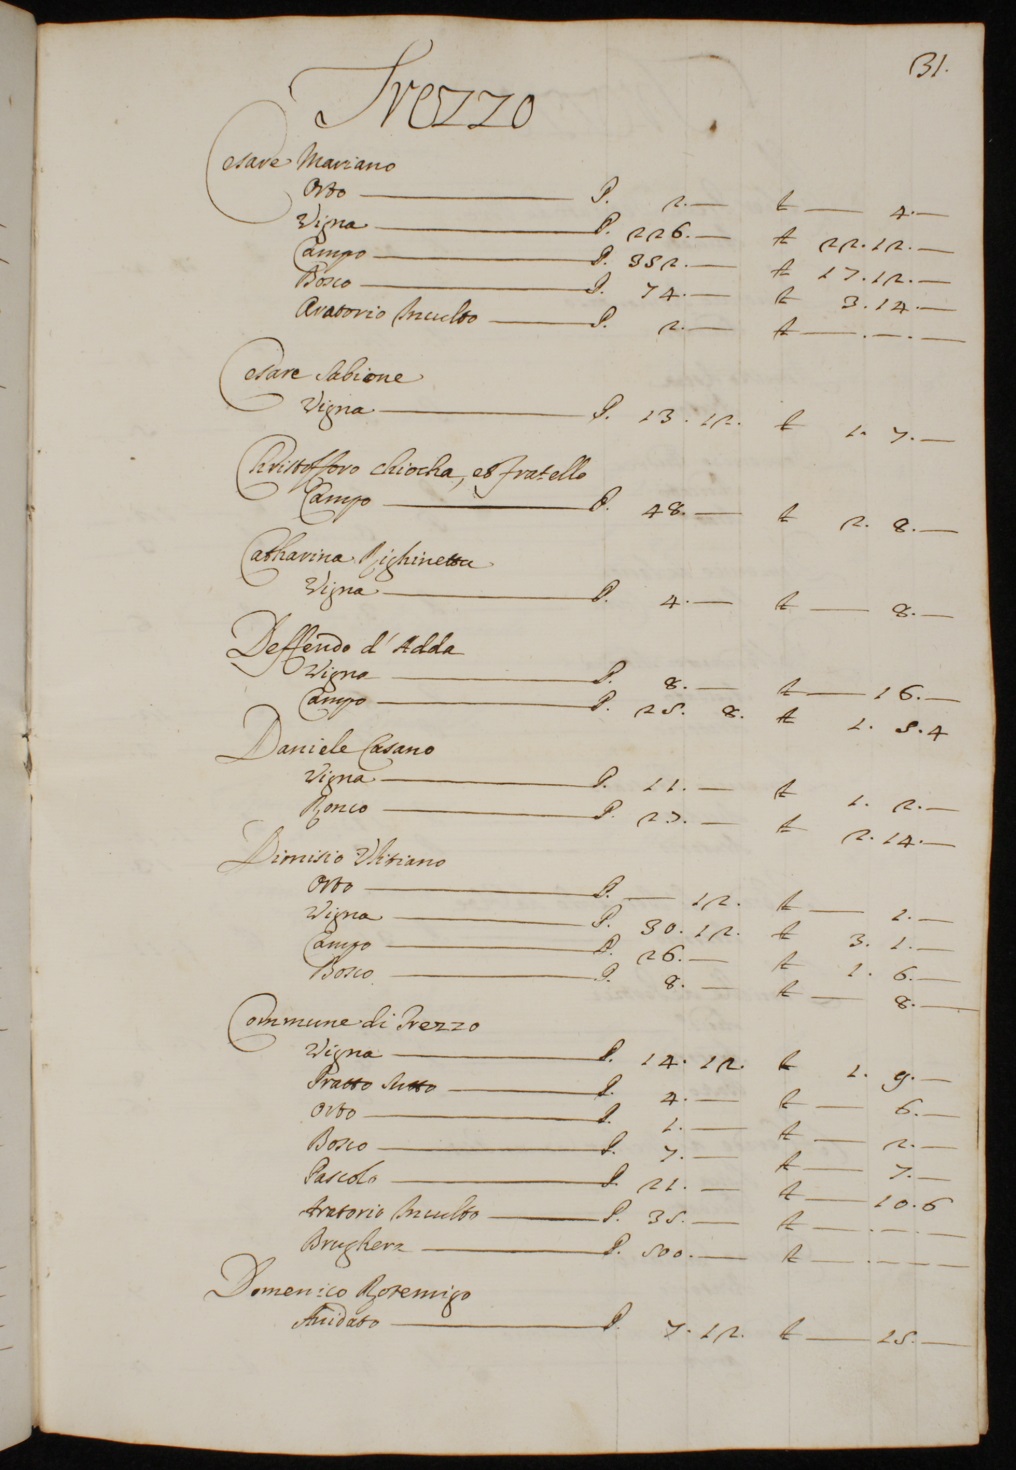 31.
Trezzo
Cesare Mariano
Orto — P. 2. — £ — 4. —
Vigna — P. 226. — £ 22. 12. —
Campo — P. 352. — £ 17. 12. —
Bosco — P. 74. — £ 3. 14. —
Aratorio Inculto — P. 2. — £ — . — . —
Cesare Sabione
Vigna — P. 13. 12. £ 1. 7. —
Christofforo Chiocha, et fratello
Campo — P. 48. — £ 2. 8. —
Catharina Righinetta
Vigna — P. 4. — £ — 8. —
Deffendo d'Adda
Vigna — P. 8. — £ — 16. —
Campo — P. 25. 8. £ 1. 5. 4
Daniele Casano
Vigna — P. 11. — £ 1. 2. —
Ronco — P. 27. — £ 2. 14. —
Dionisio Vlitiano
Orto — P. — 12. £ — 1. —
Vigna — P. 30. 12. £ 3. 1. —
Campo — P. 26. — £ 1. 6. —
Bosco — P. 8. — £ — 8. —
Commune di Trezzo
Vigna — P. 14. 12. £ 1. 9. —
Pratto sutto — P. 4. — £ — 6. —
Orto — P. 1. — £ — 2. —
Bosco — P. 7. — £ — 7. —
Pascolo — P. 21. — £ — 10. 6
Aratorio Inculto — P. 35. — £ — . — . —
Brughera — P. 500. — £ — . — — —
Domenico Rotemigo
Auidato — P. 7. 12. £ — 15. —